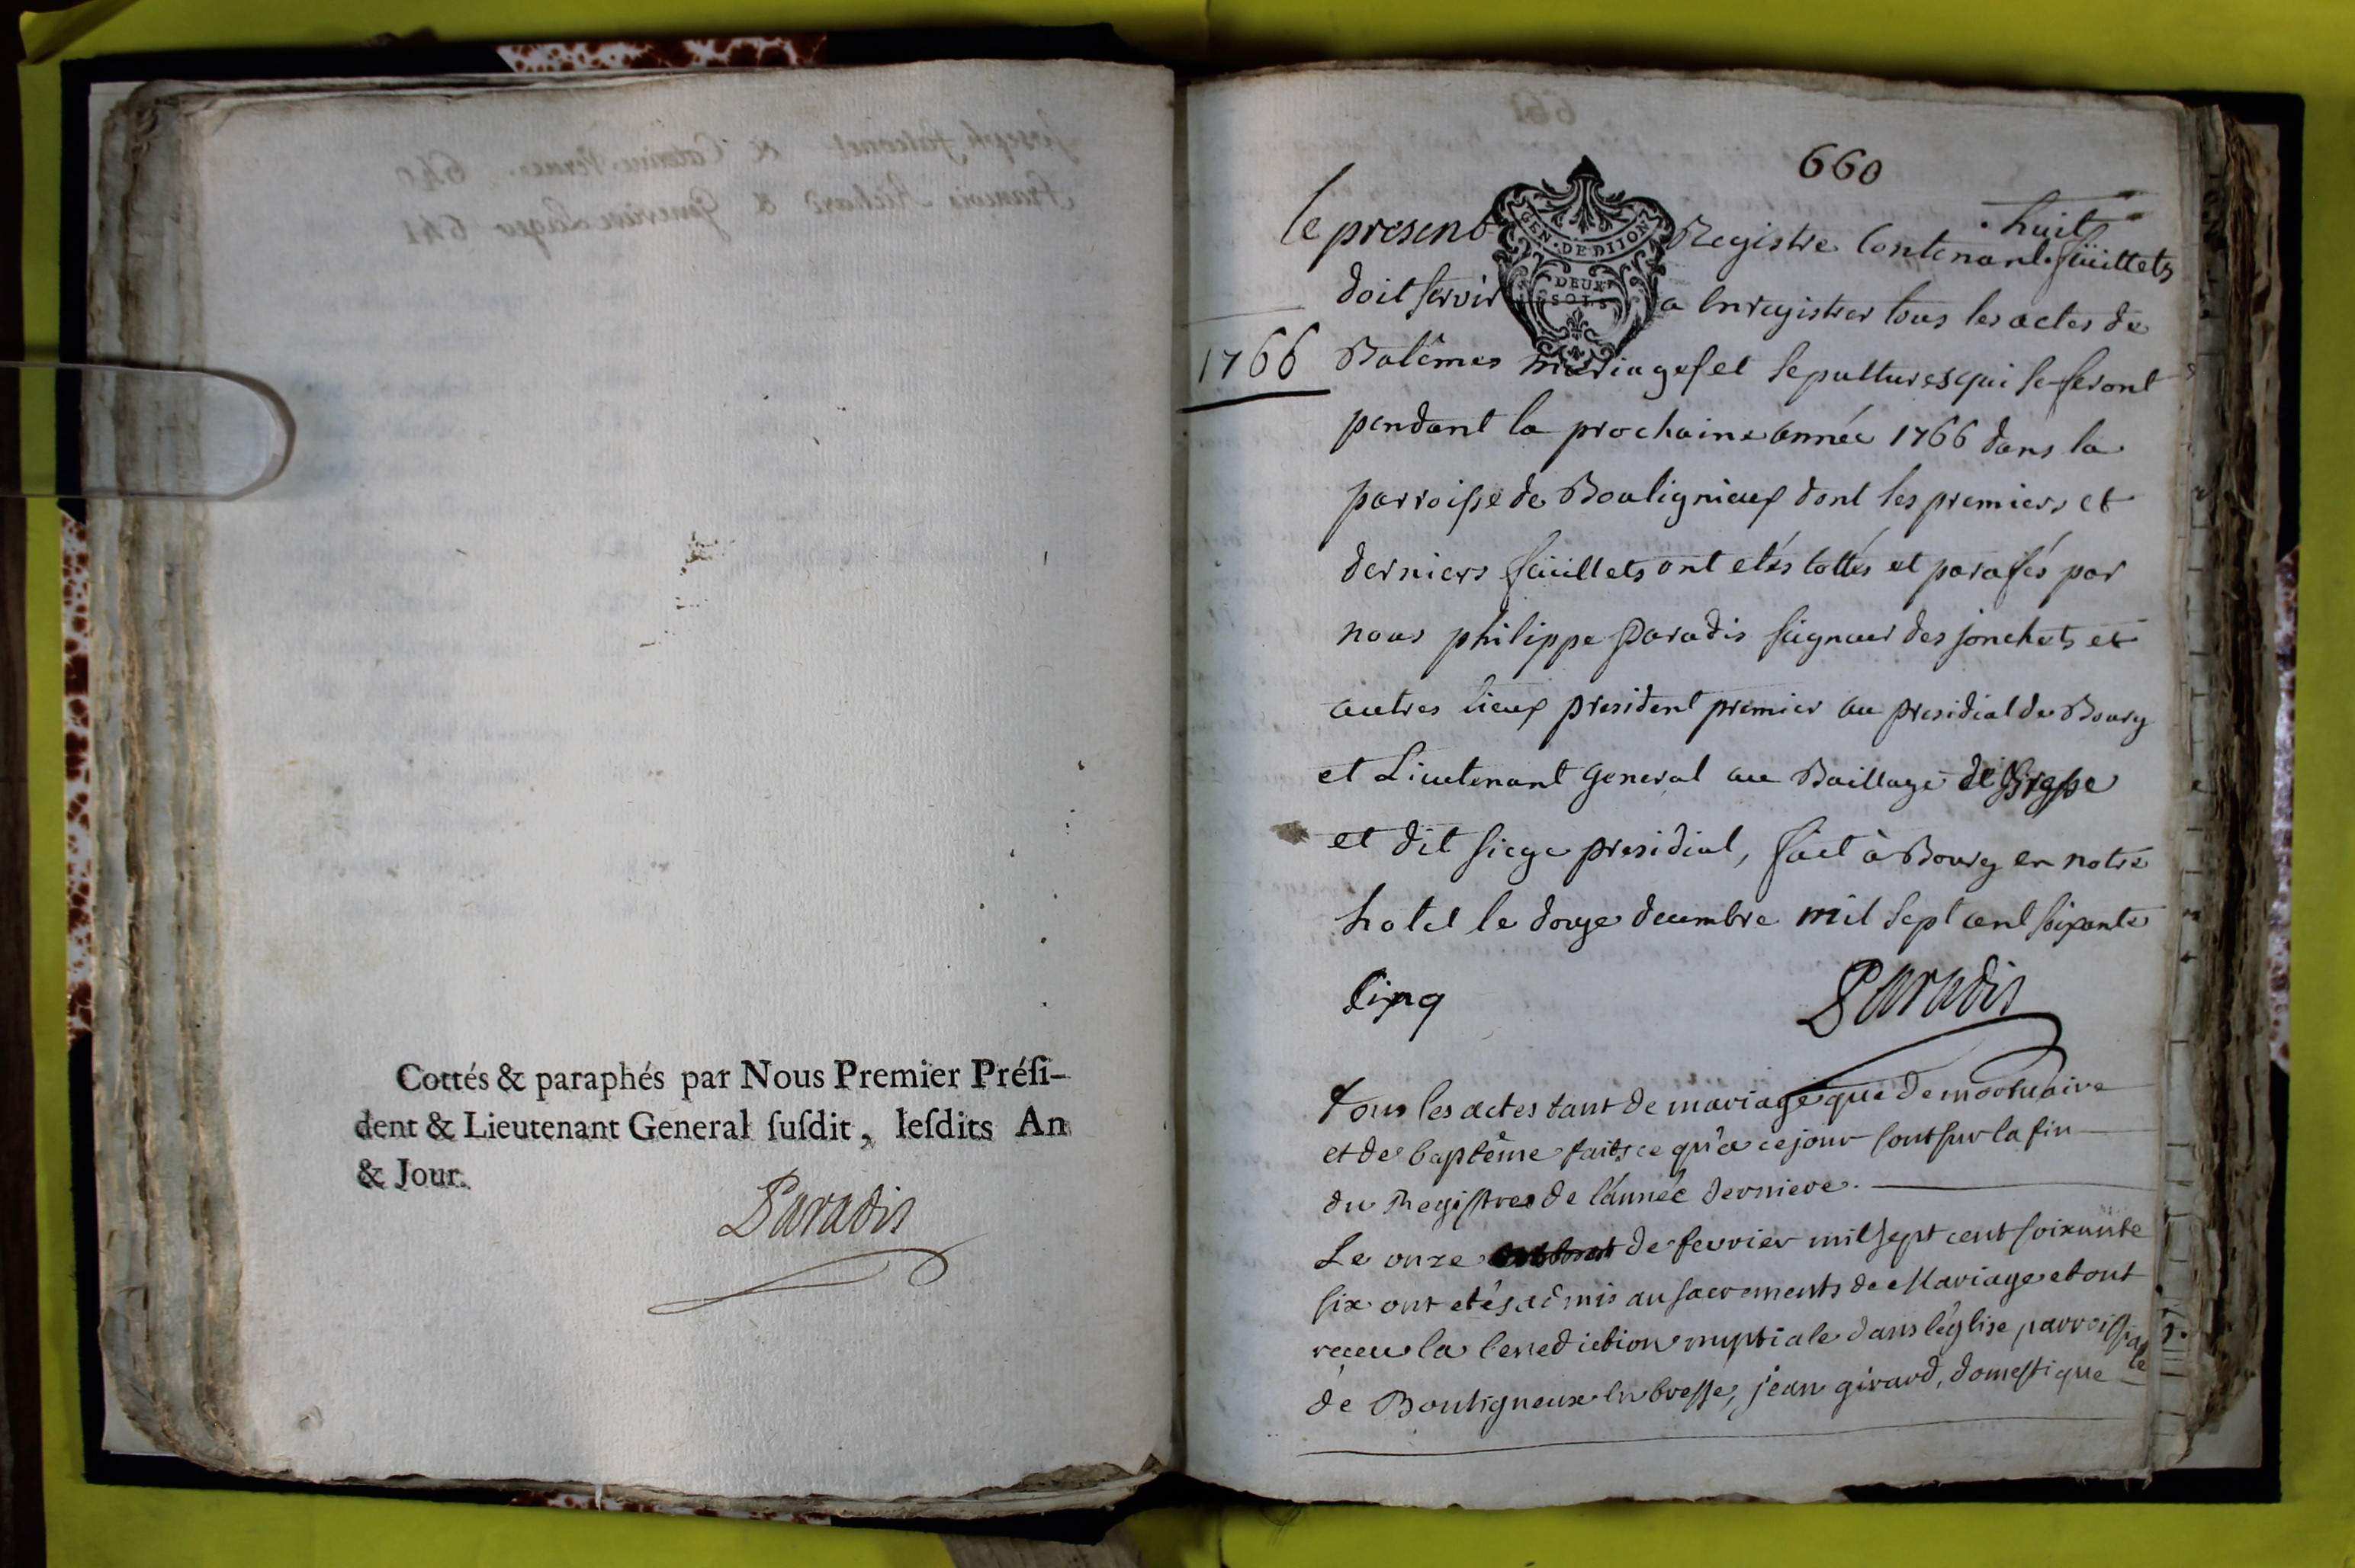 Cottés & paraphés par Nous Premier Préſi-
dent & Lieutenant General ſuſdit, leſdits An
& Jour.
Paradis
660
le present Registre Contenant huit feüillets
GEN · DE DIJON
DEUX
SOLS
doit servir a Enregistrer tous les actes de
1766
Batêmes mariages et sepultures qui se feront
pendant la prochaine année 1766 dans la
parroisse de Boulignieux dont les premiers et
derniers feüillets ont etés cottés et parafés par
nous philippe Paradis seigneur des jonchets et
autres lieux president premier au presidial de Bourg
et Lieutenant General au Baillage de Bresse
et dit siege presidial, fait à Bourg en notre
hotel le douze decembre mil sept cent soixante
Cinq
Paradis
Tous les actes tant de mariage que de mortuaire
et de baptême faits ce qu'a ce jour sont sur la fin
du Registres de l'année derniere.
Le onze de fevrier mil sept cent soixante
six ont etés admis au sacrements de Mariage et ont
receu la benediction nuptiale dans l'église parroissiale
de Bouligneux en bresse, jean girard, domestique